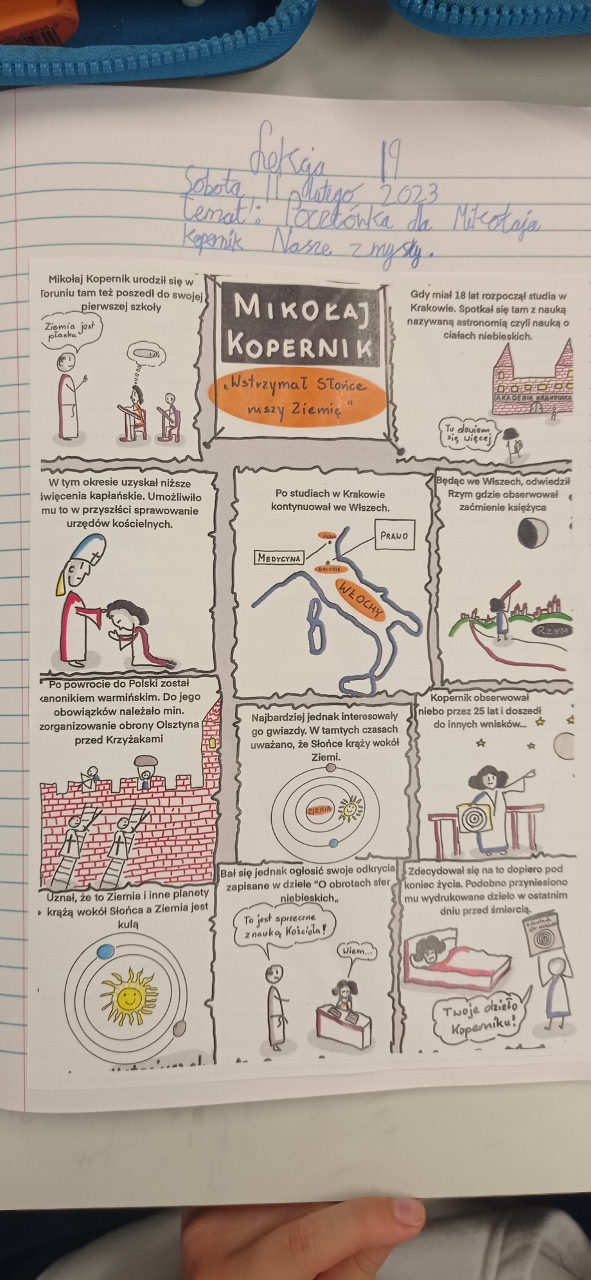 Lekcja 19
Sobota 11 lutego 2023
temat: Pocztówka dla Mikołaja
Kopernik Nasze zmysły.
Mikołaj Kopernik urodził się w
Toruniu tam też poszedł do swojej
pierwszej szkoły
Ziemia jest
płaska
MIKOŁAJ
KOPERNIK
„Wstrzymał Słońce
ruszy Ziemię"
Gdy miał 18 lat rozpoczął studia w
Krakowie. Spotkał się tam z nauką
nazywaną astronomią czyli nauką o
ciałach niebieskich.
AKADEMIA KRAKOWSKA
Tu dowiem
się więcej
W tym okresie uzyskał niższe
święcenia kapłańskie. Umożliwiło
mu to w przyszłści sprawowanie
urzędów kościelnych.
Po studiach w Krakowie
kontynuował we Włszech.
MEDYCYNA
PRAWO
WŁOCHY
Będąc we Włszech, odwiedził
Rzym gdzie obserwował
zaćmienie księżyca
RZYM
Po powrocie do Polski został
kanonikiem warmińskim. Do jego
obowiązków należało min.
zorganizowanie obrony Olsztyna
przed Krzyżakami
Najbardziej jednak interesowały
go gwiazdy. W tamtych czasach
uważano, że Słońce krąży wokół
Ziemi.
ZIEMIA
Kopernik obserwował
niebo przez 25 lat i doszedł
do innych wnisków...
Uznał, że to Ziemia i inne planety
krążą wokół Słońca a Ziemia jest
kulą
Bał się jednak ogłosić swoje odkrycia
zapisane w dziele "O obrotach sfer
niebieskich„
To jest sprzeczne
z nauką Kościoła!
Wiem...
Zdecydował się na to dopiero pod
koniec życia. Podobno przyniesiono
mu wydrukowane dzieło w ostatnim
dniu przed śmiercią.
Twoje dzieło
Koperniku!